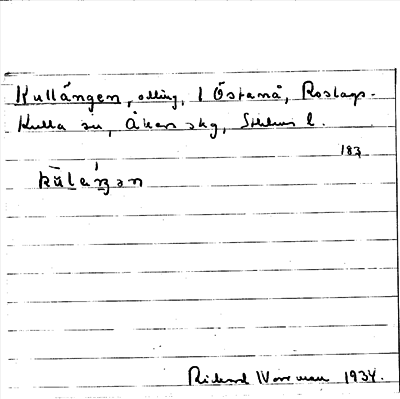 Kullängen, odling, i Östanå, Roslags-
Kulla sn, Åkers skg, Sthlms l.
183
kŭ̄la̍ŋən
Rickard Norrman 1934.